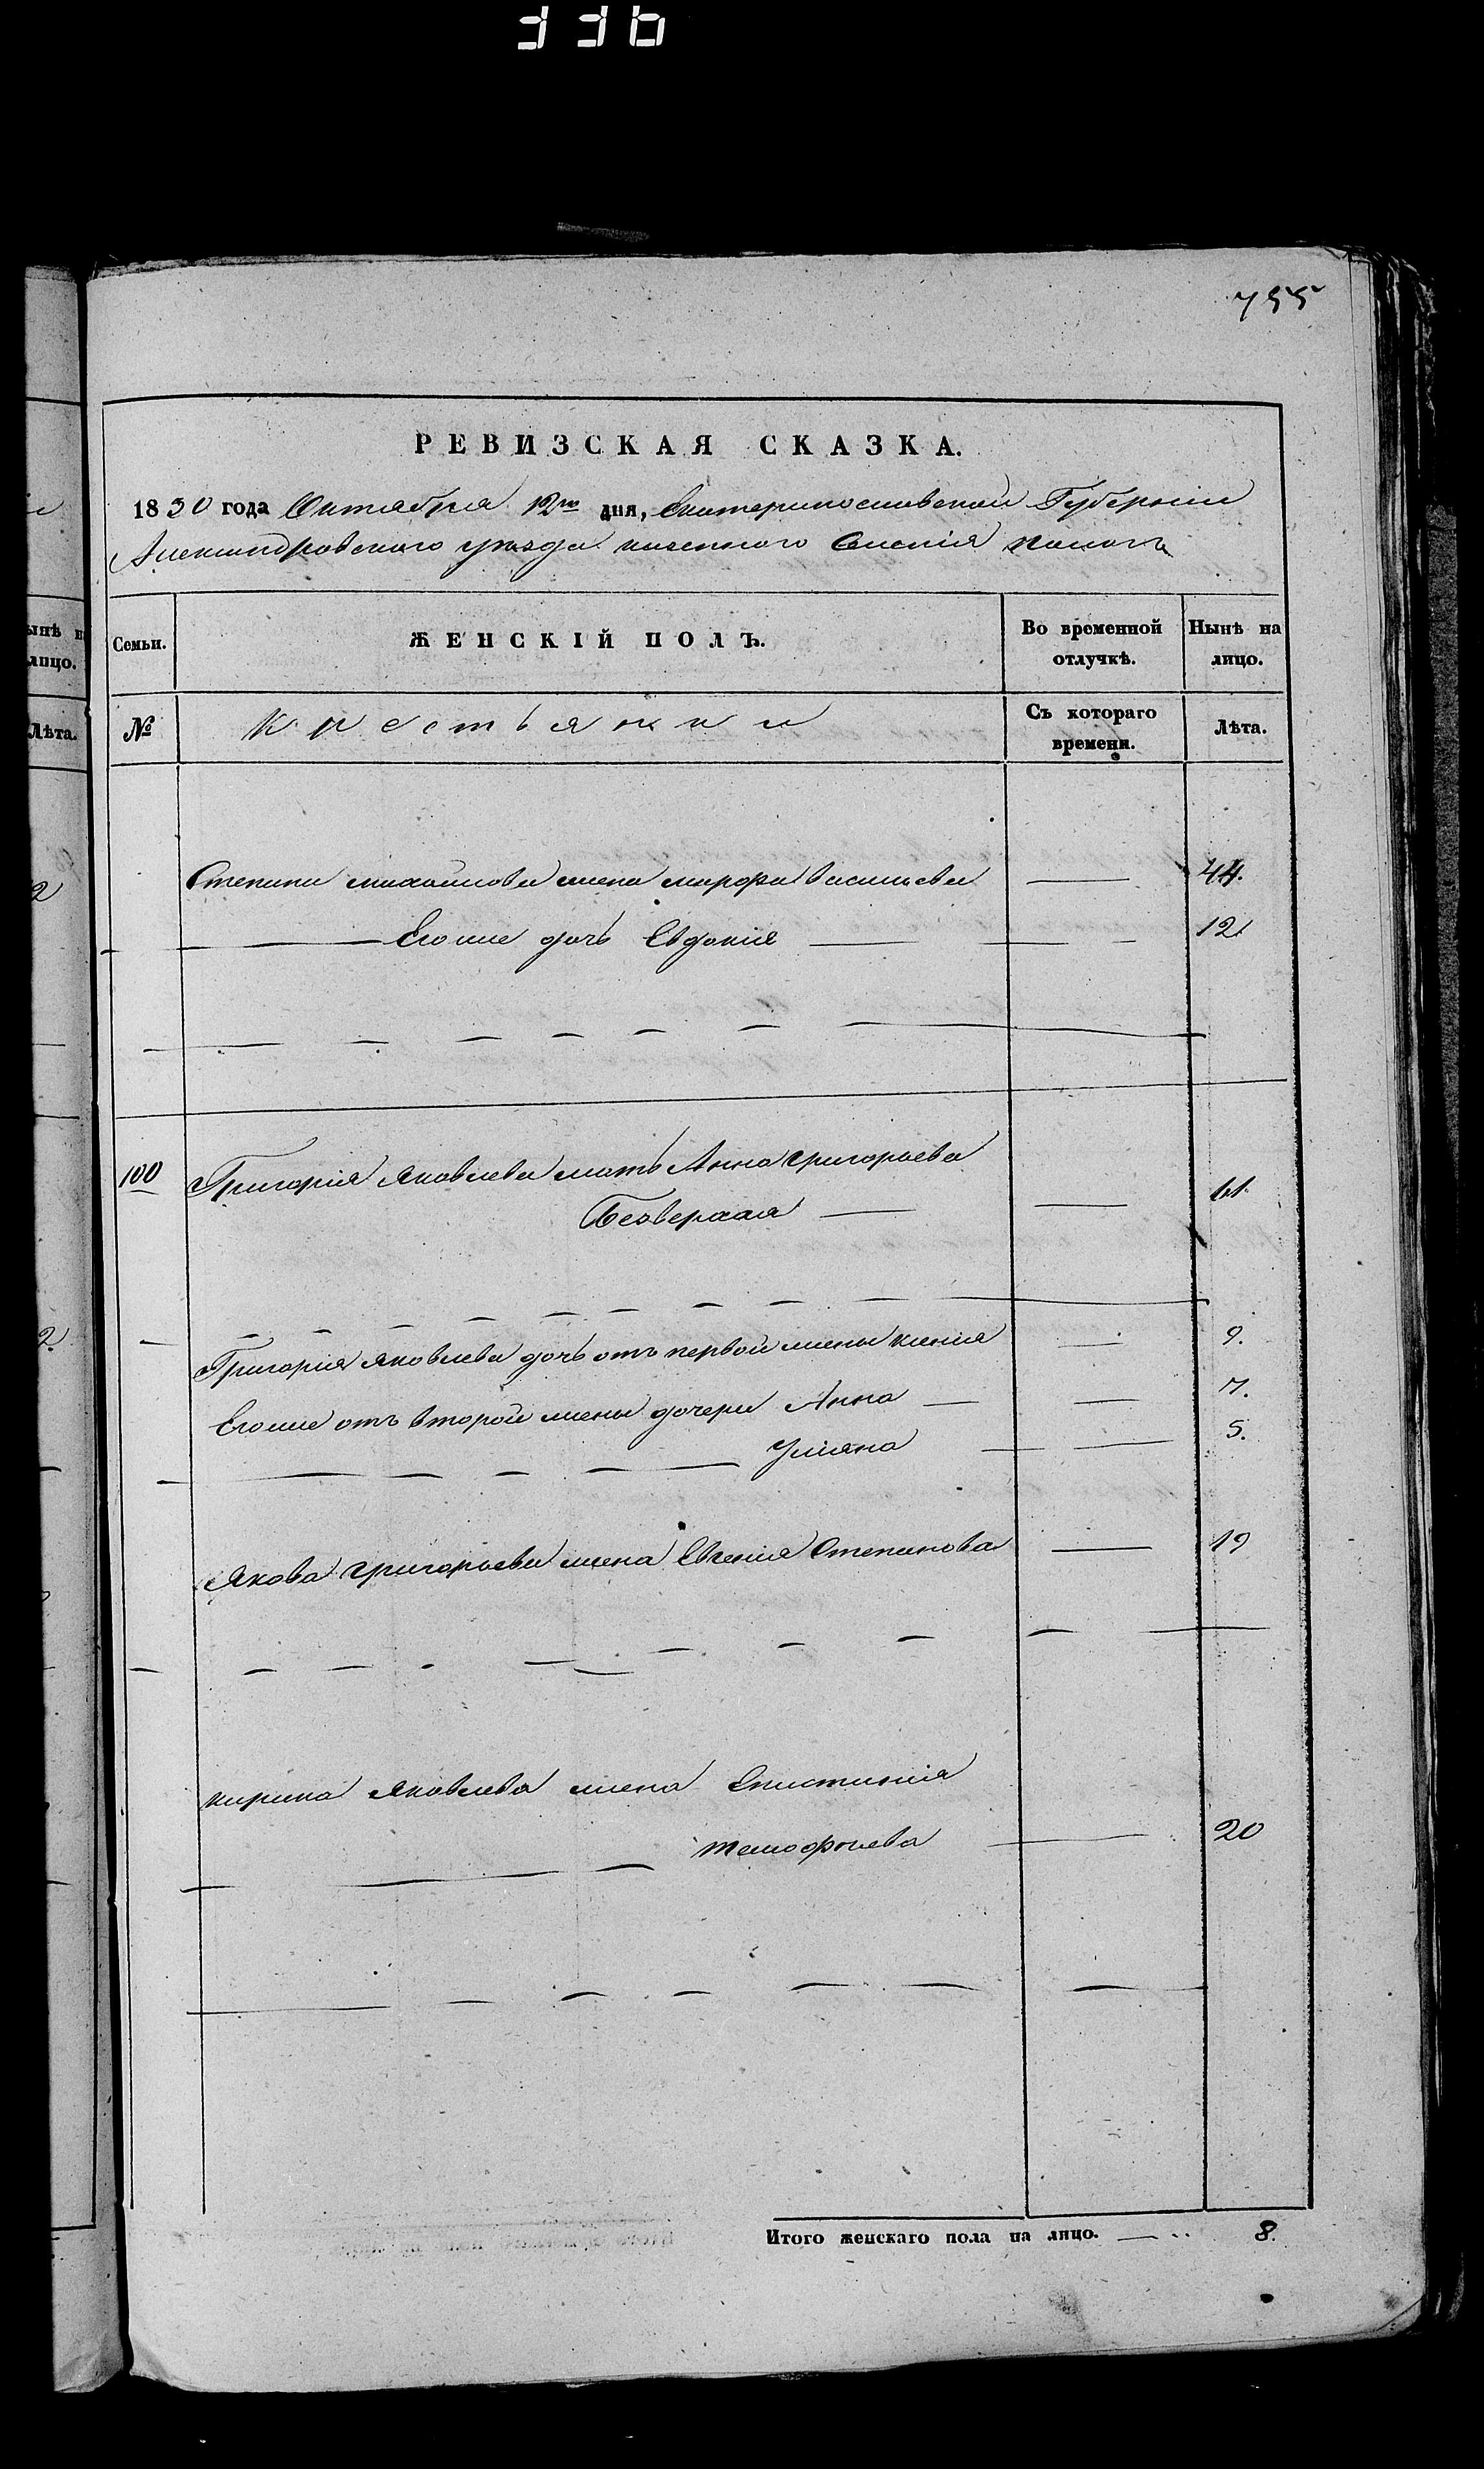 336
755
РЕВИЗСКАЯ СКАЗКА.
1850 года Октября 12го дня, Екатеринославской Губернии
Александровского уезда казенного Селения
Семьи.
ЖЕНСКІЙ ПОЛЪ.
Во временной отлучкѣ.
Нынѣ на лицо.
№
Крестьянки
Съ котораго времени.
Лѣта.
Степана михайлова жена марфа васильева 44.
Его же дочь Евдокия 12
100 Григория Яковлева мать Анна григорьева
61.
Григория яковлева дочь отъ первой жены 9.
Его же отъ второй жены дочери Анна 7.
Улияна 5.
Якова григорьева жена Евгения Степанова 19
яковлева жена Епистиния
20
Итого женскаго пола на лицо. 8.
ынѣ н
лицо.
Лѣта.
2
2.